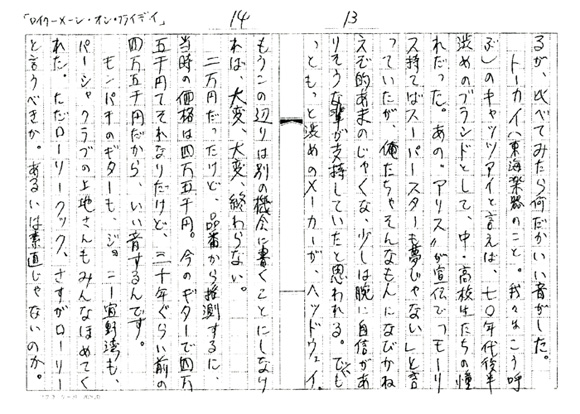 13
るが、比べてみたら何だかいい音がした。
トーカイ(東海楽器のこと。我々はこう呼
ぶ)のキャッツアイと言えば、七〇年代後半
渋めのブランドとして、中・高校生たちの憧
れだった。あの、アリス〃が宣伝でつモーリ
ス持てばスーパースターも夢じゃない」と言
っていたが、俺たちゃそんなもんになびかね
えぞ的あまのじゃくな、少しは腕に自信があ
りそうな輩が支持していたと思われる。でも
っともっと渋めのメーカーが、ヘッドウェイ。
14
「ロイクーメーン・オン・フライデイ」
もうこの辺りは別の機会に書くことにしなけ
れば、大変、大変、終わらない。
二万円だったけど、品番から推測するに、
当時の価格は四万五千円。今のギターで四万
五千円てそれなりだけど、三十年ぐらい前の
四万五千円だから、いい音するんです。
モンパチのギターも、ジョニー宜野湾も、
パーシャクラブの上地さんもみんなほめてく
れた。ただローリークック、さすがローリー
と言うべきか。あるいは素直じゃないのか。